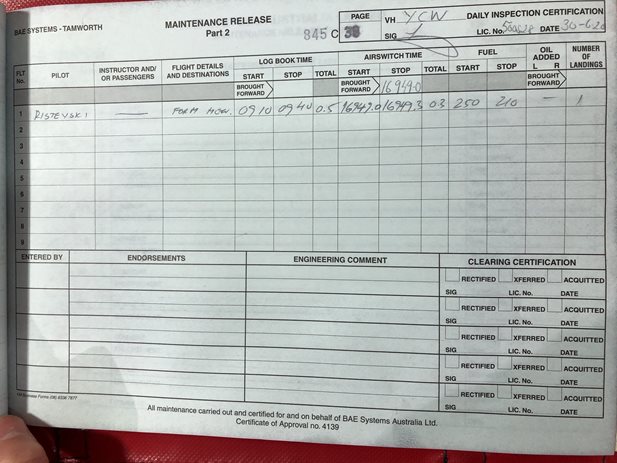 BAE SYSTEMS - TAMWORTH
MAINTENANCE RELEASE
Part 2
845 C
PAGE
38
VH YCW
SIG
DAILY INSPECTION CERTIFICATION
LIC. No. DATE 30-6-20
FLT No.
PILOT
INSTRUCTOR AND/ OR PASSENGERS
FLIGHT DETAILS AND DESTINATIONS
LOG BOOK TIME
START STOP TOTAL
AIRSWITCH TIME
START STOP TOTAL
FUEL
START STOP
OIL ADDED
L R
NUMBER OF LANDINGS
BROUGHT FORWARD
BROUGHT FORWARD 16949.0
BROUGHT FORWARD
1 RISTEVSKI — FORM 0910 0940 0.5 16949.0 16949.3 0.3 250 210 — 1
2
3
4
5
6
7
8
9
ENTERED BY ENDORSEMENTS ENGINEERING COMMENT CLEARING CERTIFICATION
RECTIFIED XFERRED ACQUITTED
SIG LIC. No. DATE
RECTIFIED XFERRED ACQUITTED
SIG LIC. No. DATE
RECTIFIED XFERRED ACQUITTED
SIG LIC. No. DATE
RECTIFIED XFERRED ACQUITTED
SIG LIC. No. DATE
RECTIFIED XFERRED ACQUITTED
SIG LIC. No. DATE
Business Forms (08) 8336 7877
All maintenance carried out and certified for and on behalf of BAE Systems Australia Ltd.
Certificate of Approval no. 4139